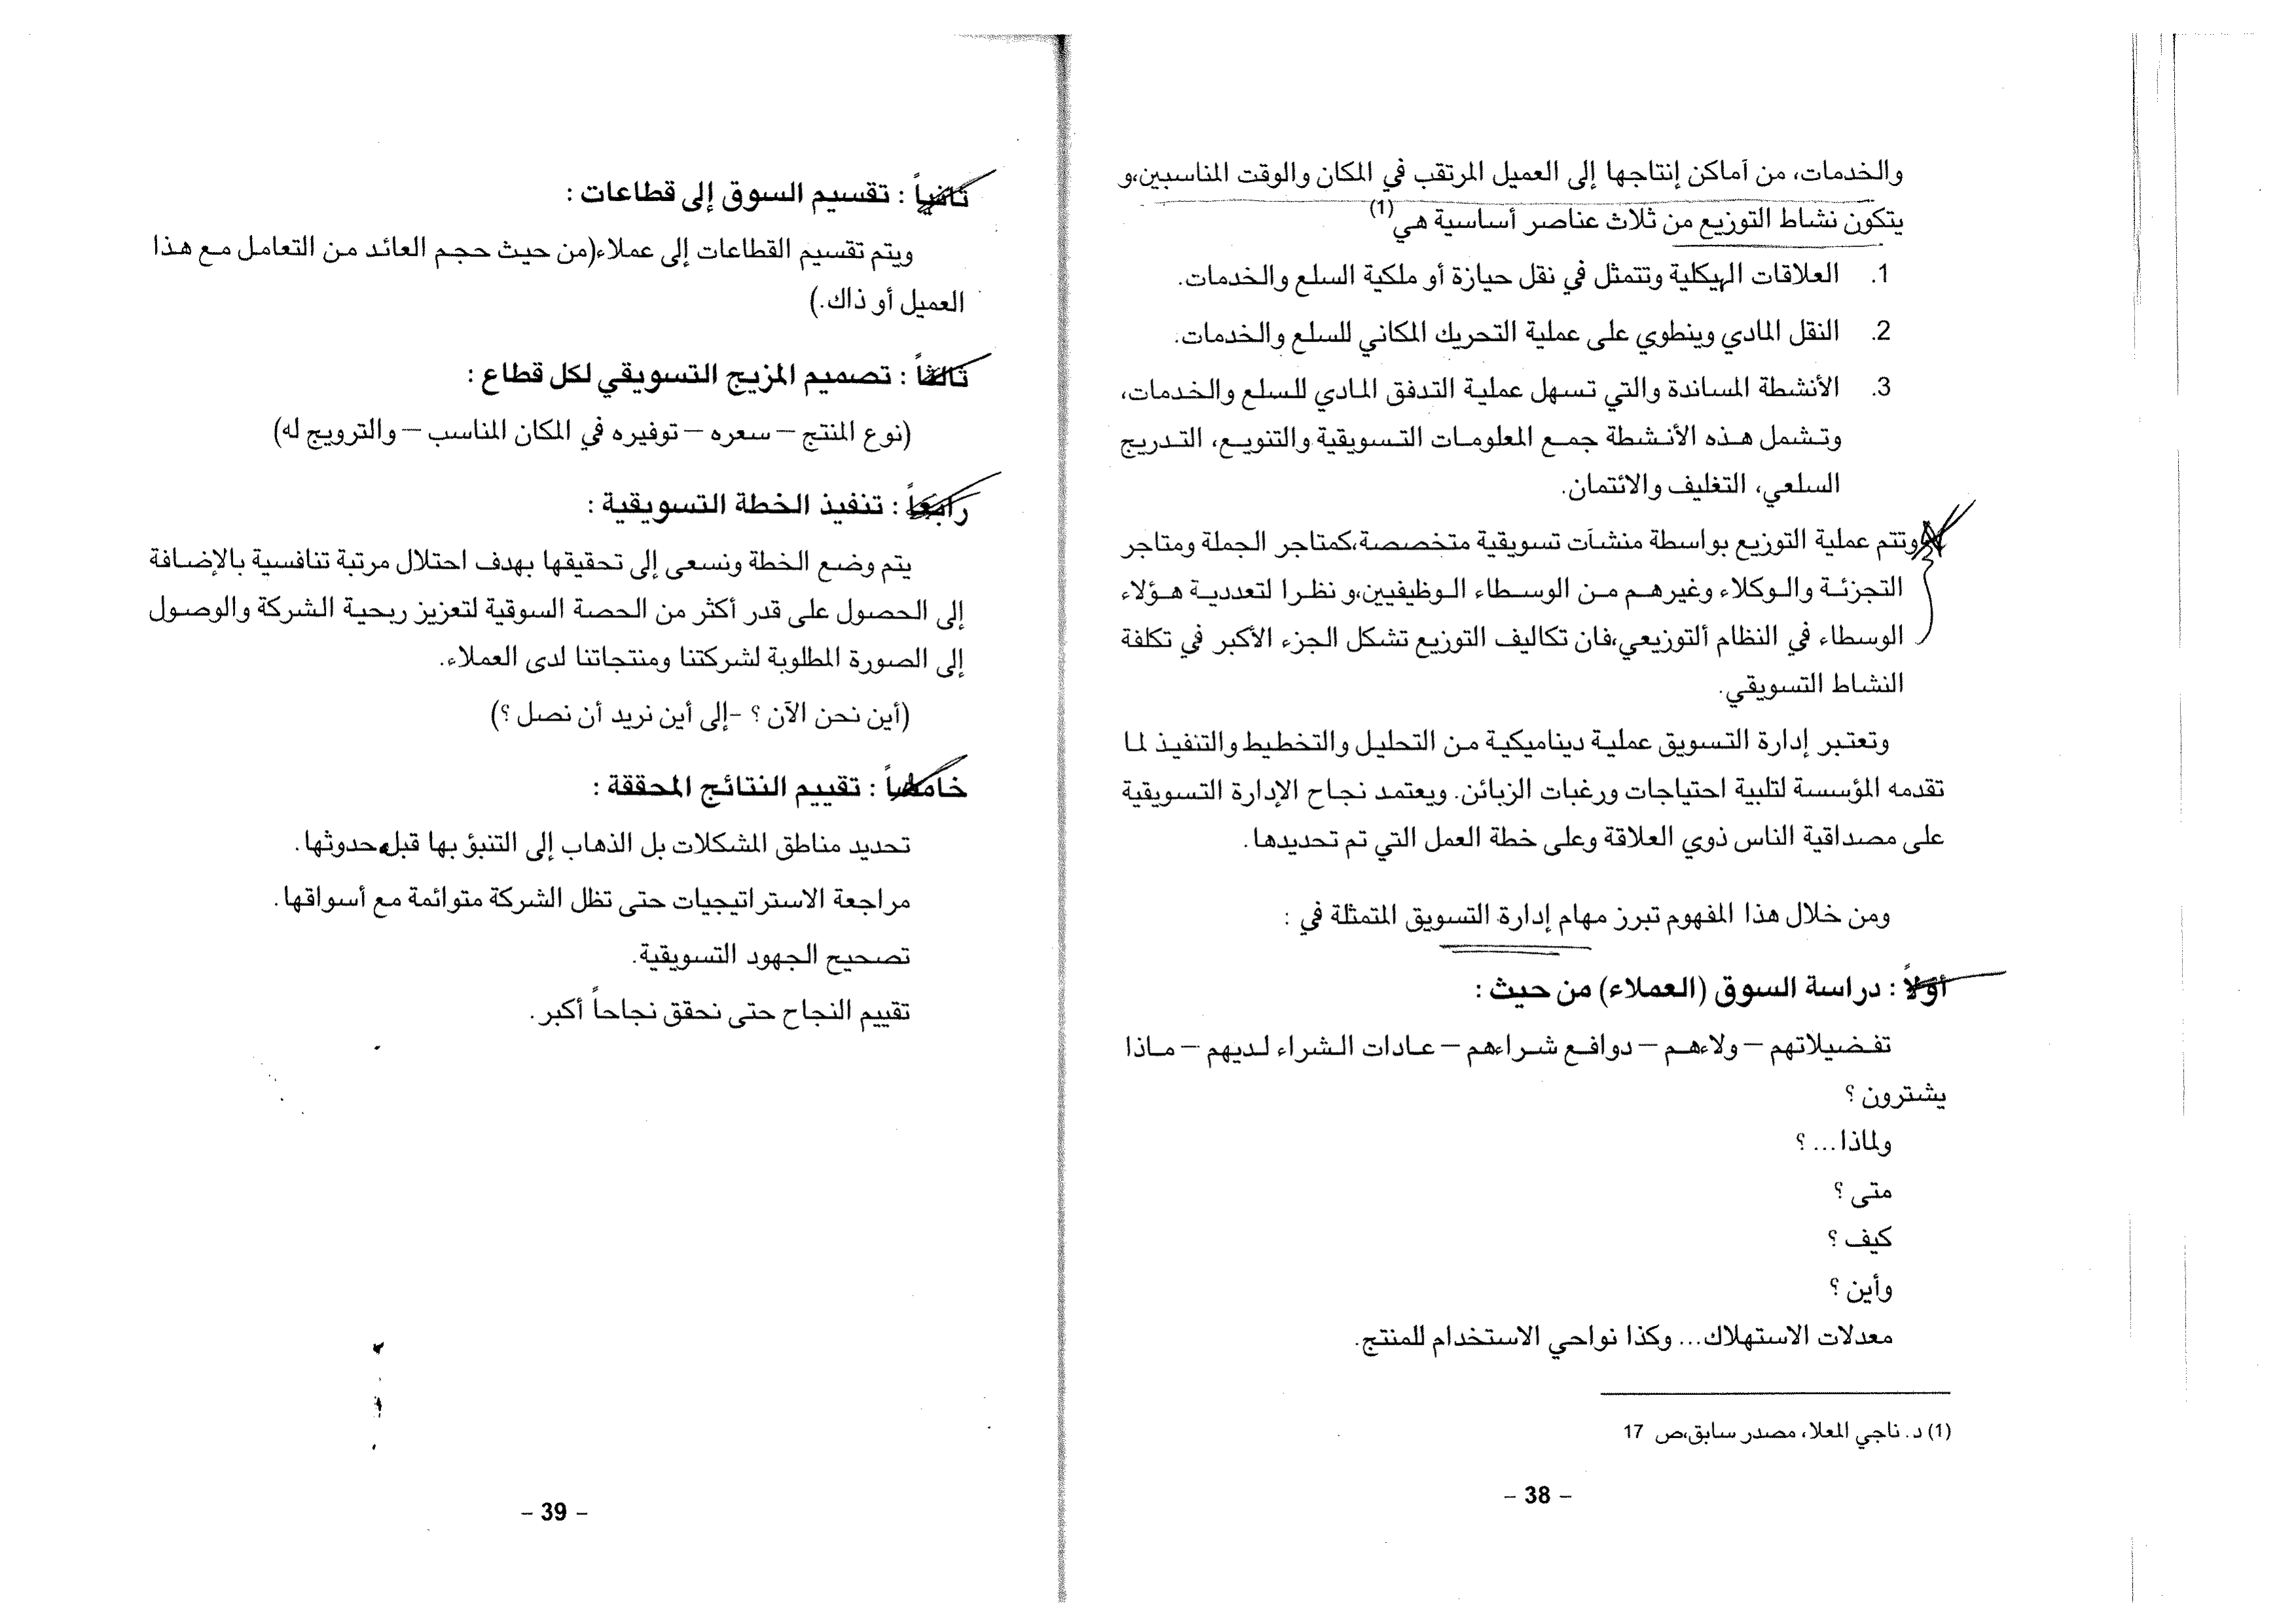 والخدمات، من أماكن إنتاجها إلى العميل المرتقب في المكان والوقت المناسبين،و
يتكون نشاط التوزيع من ثلاث عناصر أساسية هي(1)
1. العلاقات الهيكلية وتتمثل في نقل حيازة أو ملكية السلع والخدمات.
2. النقل المادي وينطوي على عملية التحريك المكاني للسلع والخدمات.
3. الأنشطة المساندة والتي تسهل عملية التدفق المادي للسلع والخدمات،
وتشمل هذه الأنشطة جمع المعلومات التسويقية والتنويع، التدريج
السلعي، التغليف والائتمان.
وتتم عملية التوزيع بواسطة منشآت تسويقية متخصصة،كمتاجر الجملة ومتاجر
التجزئة والوكلاء وغيرهم من الوسطاء الوظيفيين،و نظرا لتعددية هؤلاء
الوسطاء في النظام ألتوزيعي،فان تكاليف التوزيع تشكل الجزء الأكبر في تكلفة
النشاط التسويقي.
وتعتبر إدارة التسويق عملية ديناميكية من التحليل والتخطيط والتنفيذ لما
تقدمه المؤسسة لتلبية احتياجات ورغبات الزبائن. ويعتمد نجاح الإدارة التسويقية
على مصداقية الناس ذوي العلاقة وعلى خطة العمل التي تم تحديدها.
ومن خلال هذا المفهوم تبرز مهام إدارة التسويق المتمثلة في :
أولاً : دراسة السوق (العملاء) من حيث :
تفضيلاتهم – ولاءهم – دوافع شراءهم – عادات الشراء لديهم – ماذا
يشترون ؟
ولماذا... ؟
متى ؟
كيف ؟
وأين ؟
معدلات الاستهلاك... وكذا نواحي الاستخدام للمنتج.
(1) د. ناجي المعلا، مصدر سابق،ص 17
- 38 -
ثانياً : تقسيم السوق إلى قطاعات :
ويتم تقسيم القطاعات إلى عملاء(من حيث حجم العائد من التعامل مع هذا
العميل أو ذاك.)
ثالثاً : تصميم المزيج التسويقي لكل قطاع :
(نوع المنتج – سعره – توفيره في المكان المناسب – والترويج له)
رابعاً : تنفيذ الخطة التسويقية :
يتم وضع الخطة ونسعى إلى تحقيقها بهدف احتلال مرتبة تنافسية بالإضافة
إلى الحصول على قدر أكثر من الحصة السوقية لتعزيز ربحية الشركة والوصول
إلى الصورة المطلوبة لشركتنا ومنتجاتنا لدى العملاء.
(أين نحن الآن ؟ -إلى أين نريد أن نصل ؟)
خامساً : تقييم النتائج المحققة :
تحديد مناطق المشكلات بل الذهاب إلى التنبؤ بها قبل حدوثها.
مراجعة الاستراتيجيات حتى تظل الشركة متوائمة مع أسواقها.
تصحيح الجهود التسويقية.
تقييم النجاح حتى نحقق نجاحاً أكبر.
- 39 -